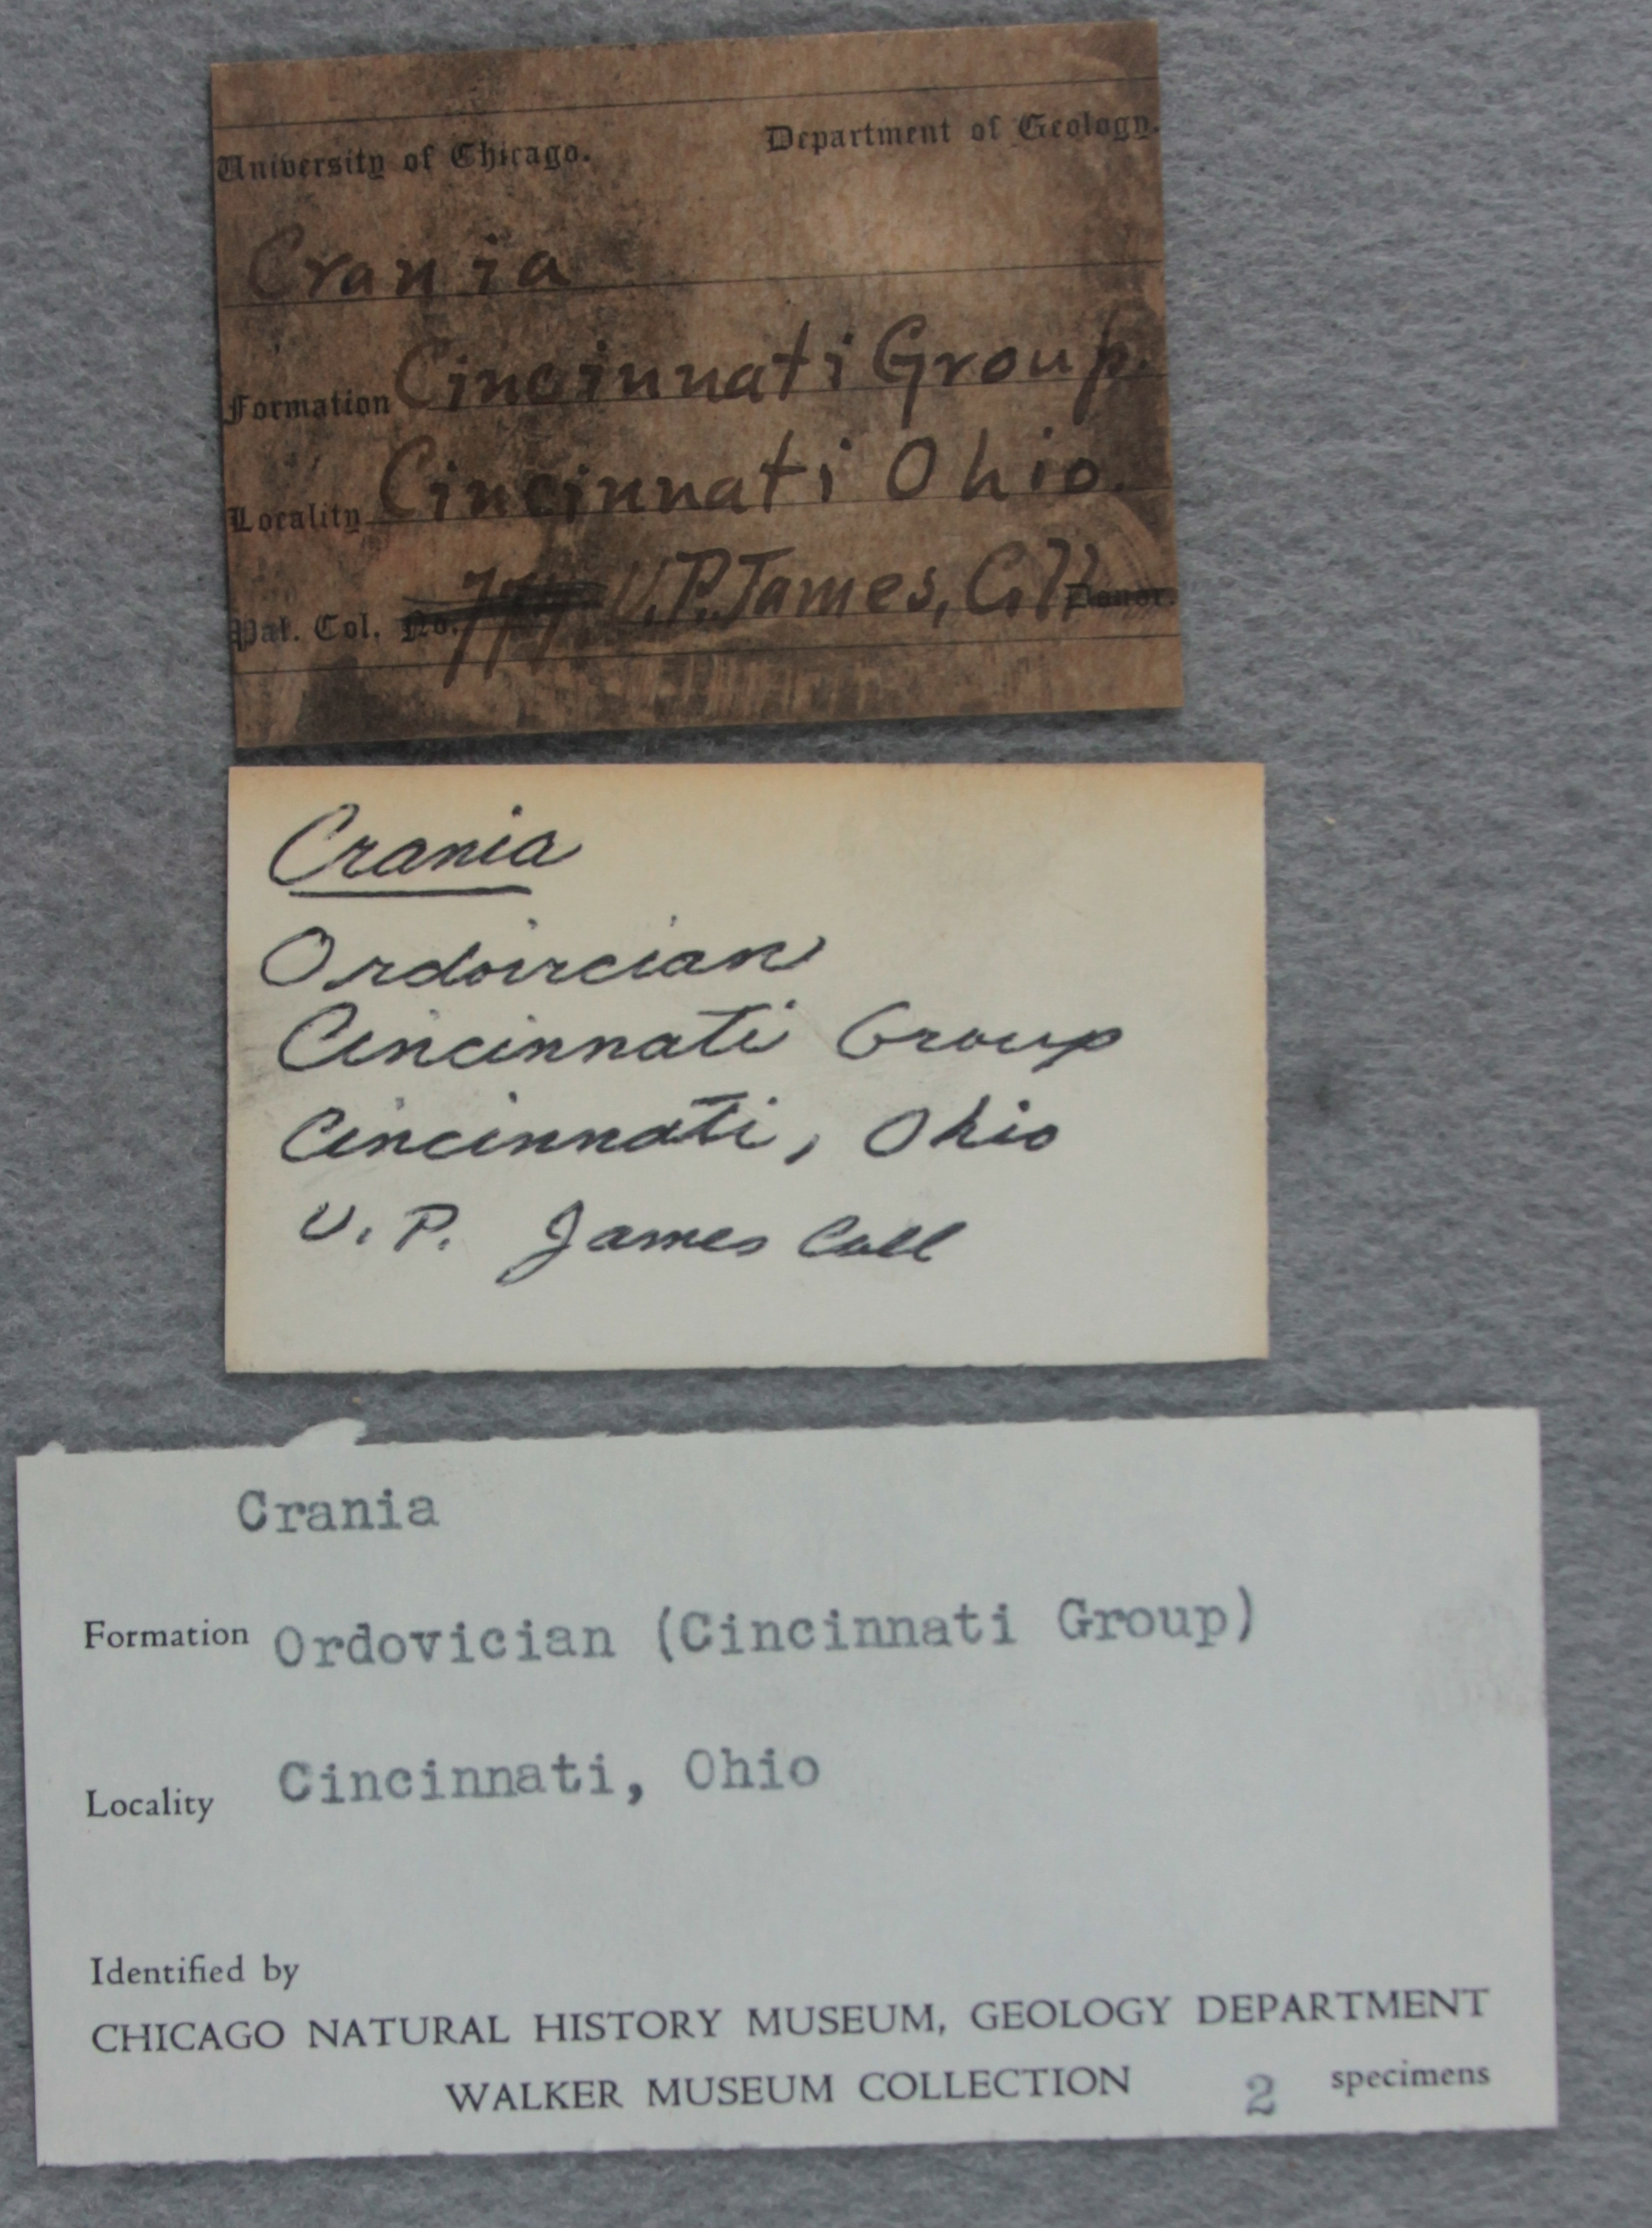 University of Chicago. Department of Geology.
Crania
Formation Cincinnati Group.
Locality Cincinnati Ohio.
Pal. Col. No. U.P. James, Coll Donor.
Crania
Ordovician
Cincinnati Group
Cincinnati, Ohio
U. P. James Coll
Crania
Formation Ordovician (Cincinnati Group)
Locality Cincinnati, Ohio
Identified by
CHICAGO NATURAL HISTORY MUSEUM, GEOLOGY DEPARTMENT
WALKER MUSEUM COLLECTION 2 specimens